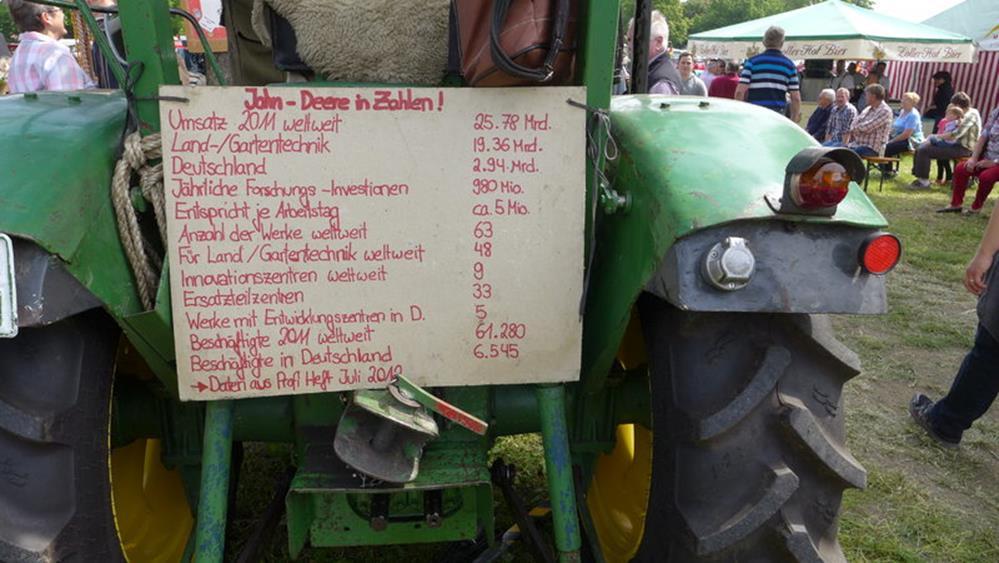 John - Deere in Zahlen!
Umsatz 2011 weltweit 25.78 Mrd.
Land-/Gartentechnik 19.36 Mrd.
Deutschland 2.94 Mrd.
Jährliche Forschungs-Investionen 980 Mio.
Entspricht je Arbeitstag ca. 5 Mio.
Anzahl der Werke weltweit 63
Für Land/Gartentechnik weltweit 48
Innovationszentren weltweit 9
Ersatzteilzentren 33
Werke mit Entwicklungszentren in D. 5
Beschäftigte 2011 weltweit 61.280
Beschäftigte in Deutschland 6.545
→Daten aus Profi Heft Juli 2012
Zoller-Hof Bier
Zoller-Hof Bier